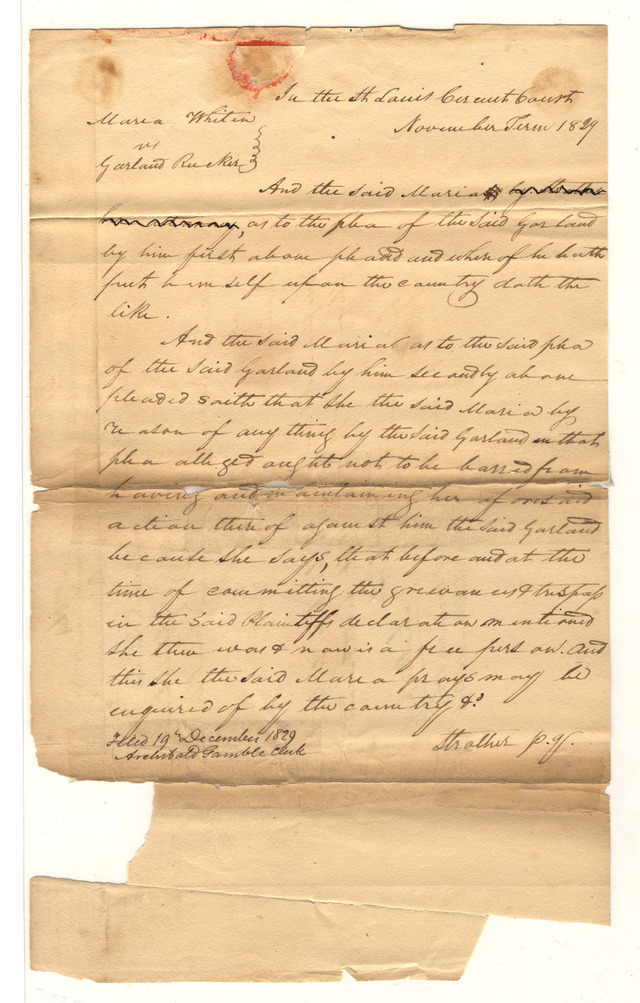 In the St Louis Circuit Court
November Term 1829
Maria Whiten
vs
Garland Rucker
And the said Maria
, as to the plea of the said Garland
by him first above pleaded and whereof he hath
put himself upon the country doth the
like.
And the said Maria as to the said plea
of the said Garland by him secondly above
pleaded saith that she the said Maria by
reason of any thing by the said Garland in that
plea alleged ought not to be barred from
having and maintaining her aforesaid
action thereof against him the said Garland
because she says, that before and at the
time of committing the grievances & trespass
in the said Plaintiffs declaration mentioned
she then was & now is a free person. And
this she the said Maria prays may be
enquired of by the country &c
Strother p.q.
Filed 19th December 1829
Archibald Gamble Clerk